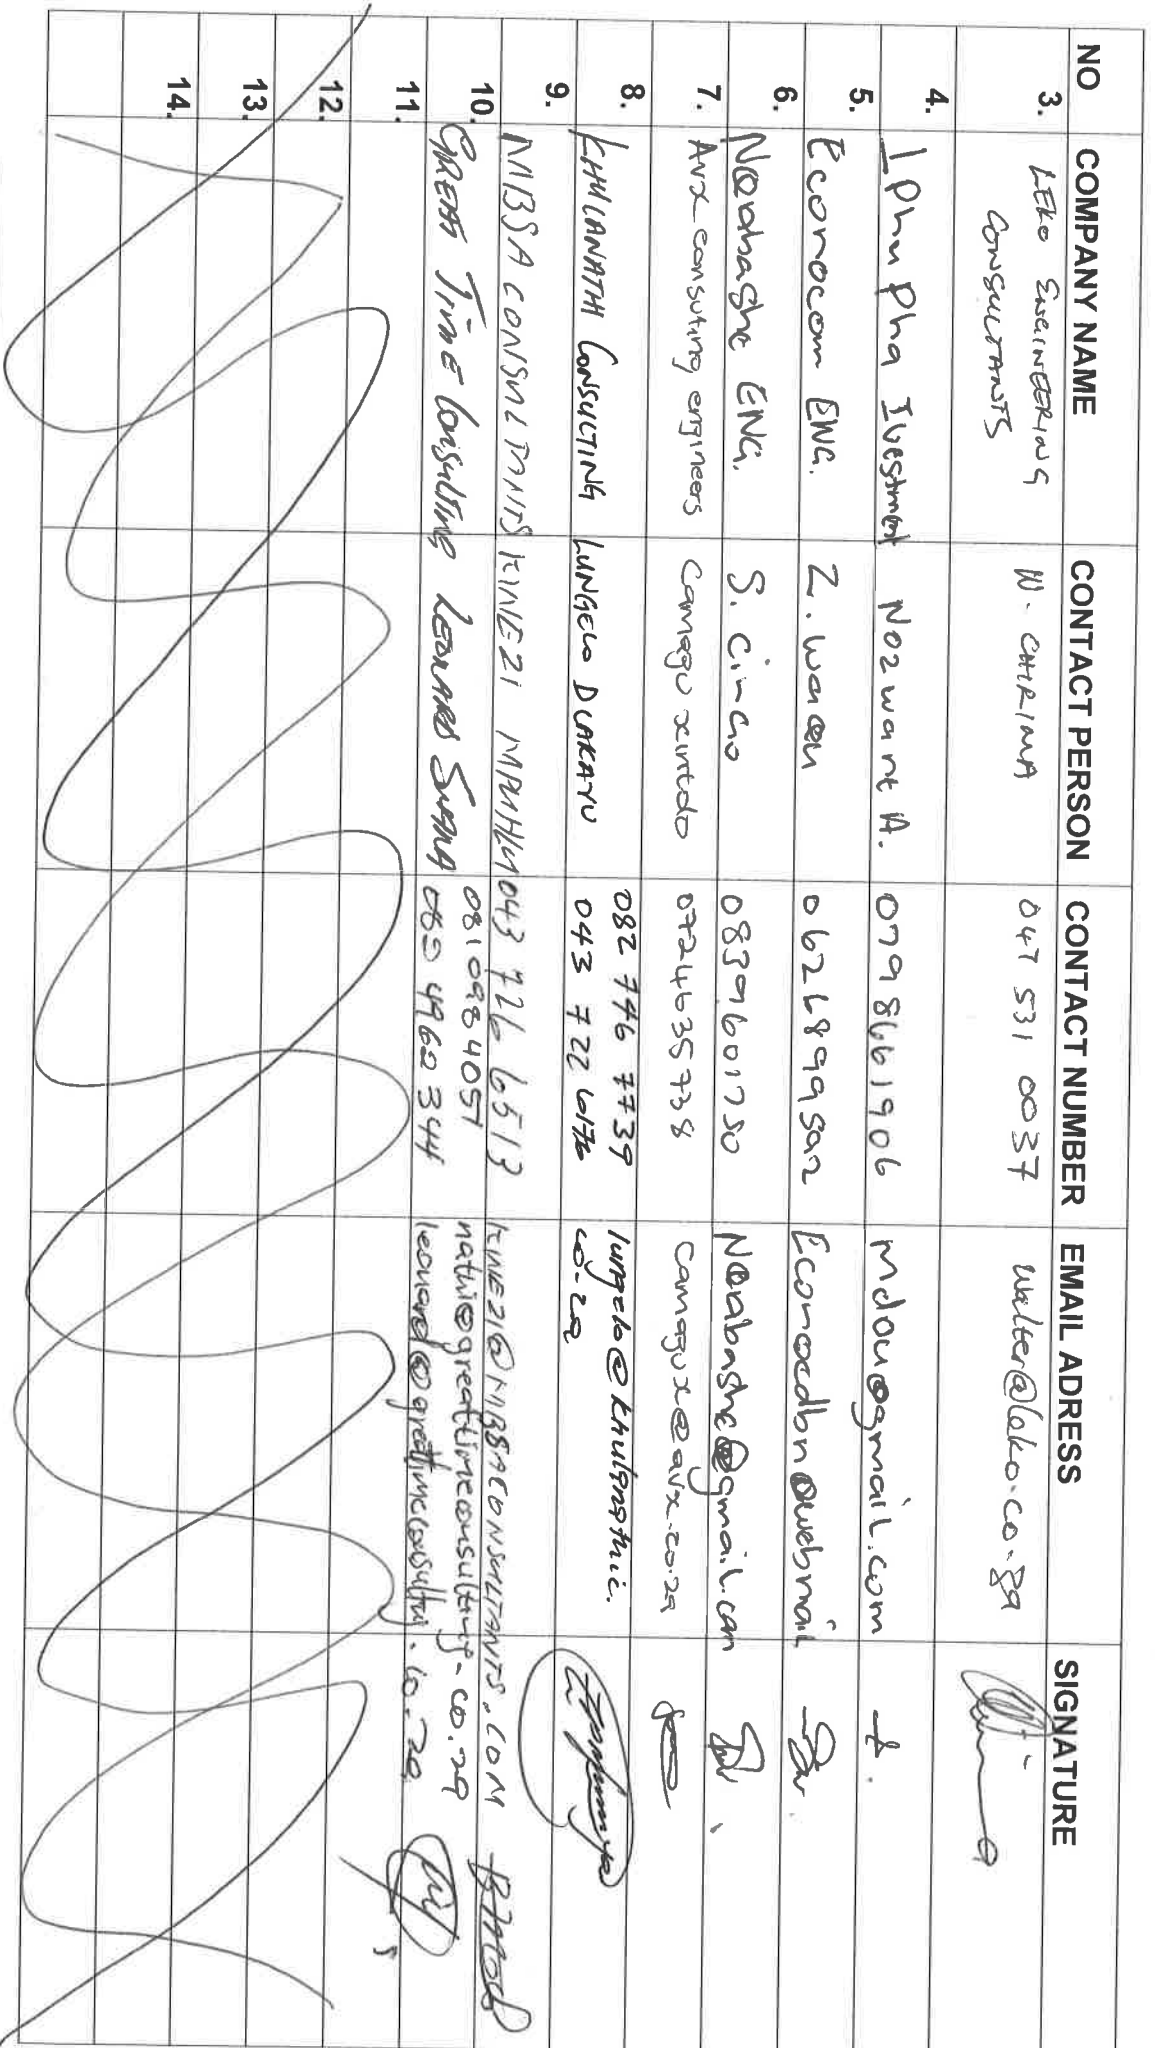 NO COMPANY NAME CONTACT PERSON CONTACT NUMBER EMAIL ADRESS SIGNATURE
3. LEKO ENGINEERING CONSULTANTS W. CHIRIMA 047 531 0037 walter@leko.co.za
4. IPhuPha Ivestment Nozwant A. 0798661906 Mdou@gmail.com
5. Econocom ENG. Z. 0626899592 Econocdbn@webmail
6. Noabashe ENG. S. Cinco 0839601750 Noabashe@gmail.com
7. AVX consuting engineers Camagu xintolo 0724635738 camagux@avx.co.za
8. KHULANATHI CONSULTING LUNGELO DLAKAVU 082 746 7739
043 722 6176 lungelo@khulanathic.
co.za
9. MBSA CONSULTANTS KHWEZI 043 726 6513 KHWEZI@MBSACONSULTANTS.COM
10. GREAT TIME CONSULTING LEONARD 081 098 4057
083 4962344 nathi@greattimeconsulting.co.za
leonard@greattimeconsulting.co.za
11.
12.
13.
14.